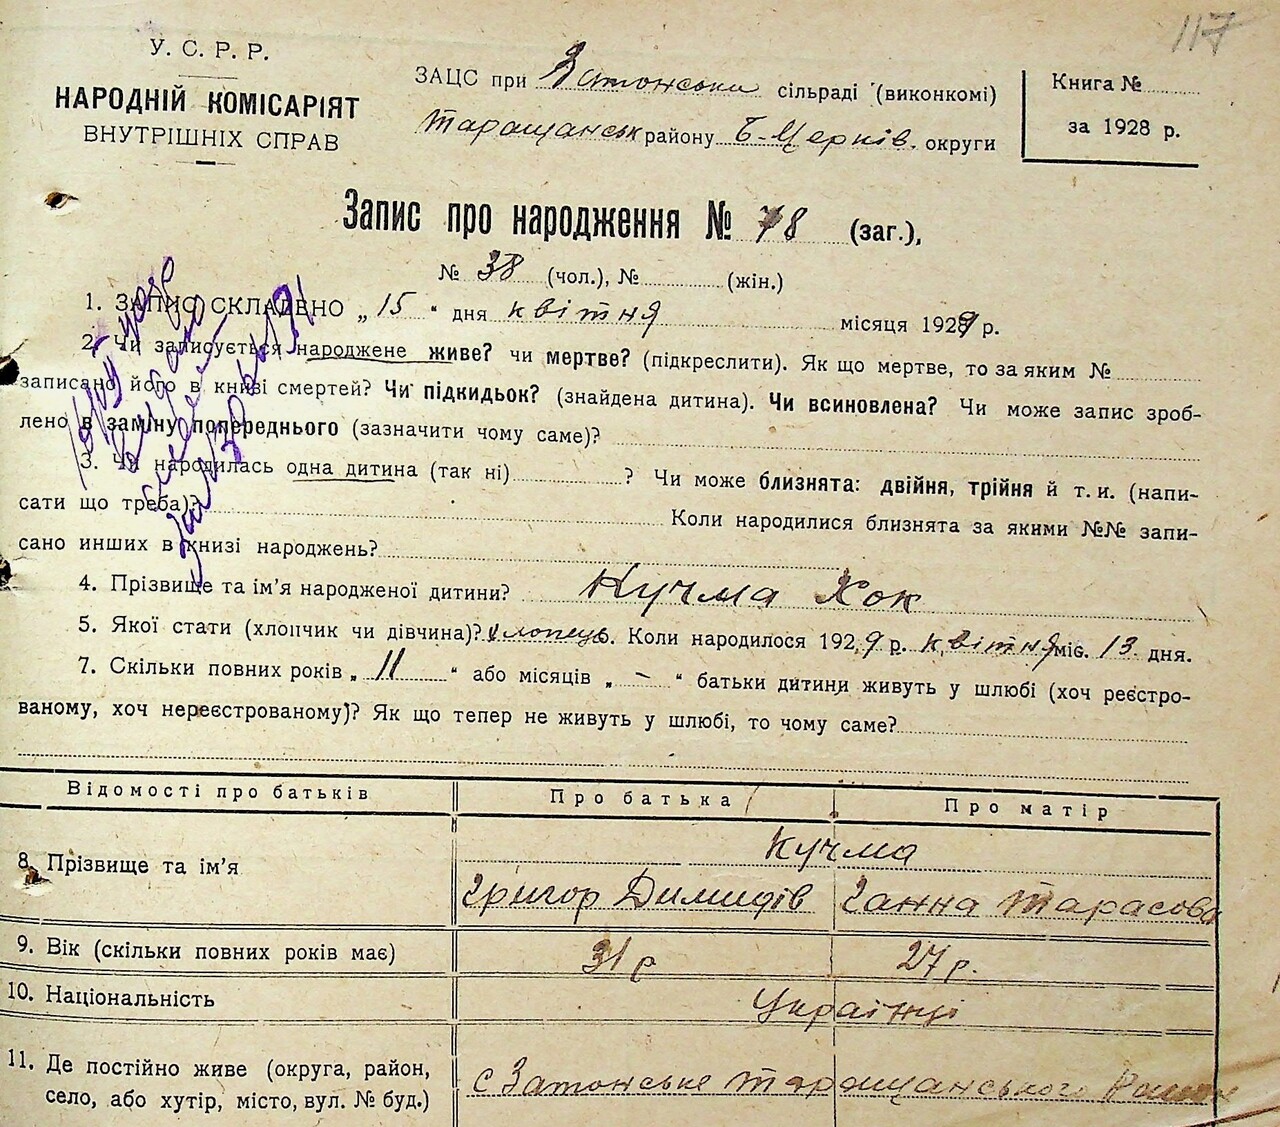 117
У. С. Р. Р.
НАРОДНІЙ КОМІСАРІЯТ
ВНУТРІШНІХ СПРАВ
ЗАЦС при Затонськи сільраді (виконкомі)
Таращанськ району Б-Церків. округи
Книга №
за 1928 р.
Запис про народження № 78 (заг.),
№ 38 (чол.), № (жін.)
1. ЗАПИС СКЛАДЕНО „15 “ дня квітня місяця 1929 р.
2. Чи записується народжене живе? чи мертве? (підкреслити). Як що мертве, то за яким №
записано його в книзі смертей? Чи підкидьок? (знайдена дитина). Чи всиновлена? Чи може запис зроб-
лено в заміну попереднього (зазначити чому саме)?
3. Чи народилась одна дитина (так ні) ? Чи може близнята: двійня, трійня й т. и. (напи-
сати що треба)? Коли народилися близнята за якими №№ запи-
сано инших в книзі народжень?
4. Прізвище та ім’я народженої дитини? Кучма Хок
5. Якої стати (хлопчик чи дівчина)? хлопець. Коли народилося 1929 р. квітня міс. 13 дня.
7. Скільки повних років „ 11 “ або місяців „ – “ батьки дитини живуть у шлюбі (хоч реєстро-
ваному, хоч нереєстрованому)? Як що тепер не живуть у шлюбі, то чому саме?
Відомості про батьків Про батька Про матір
Кучма
8. Прізвище та ім’я Григор Димидів Ганна Тарасова
9. Вік (скільки повних років має) 31 р 27 р.
10. Національність Українці
11. Де постійно живе (округа, район,
с Затонське Таращанського Району
село, або хутір, місто, вул. № буд.)